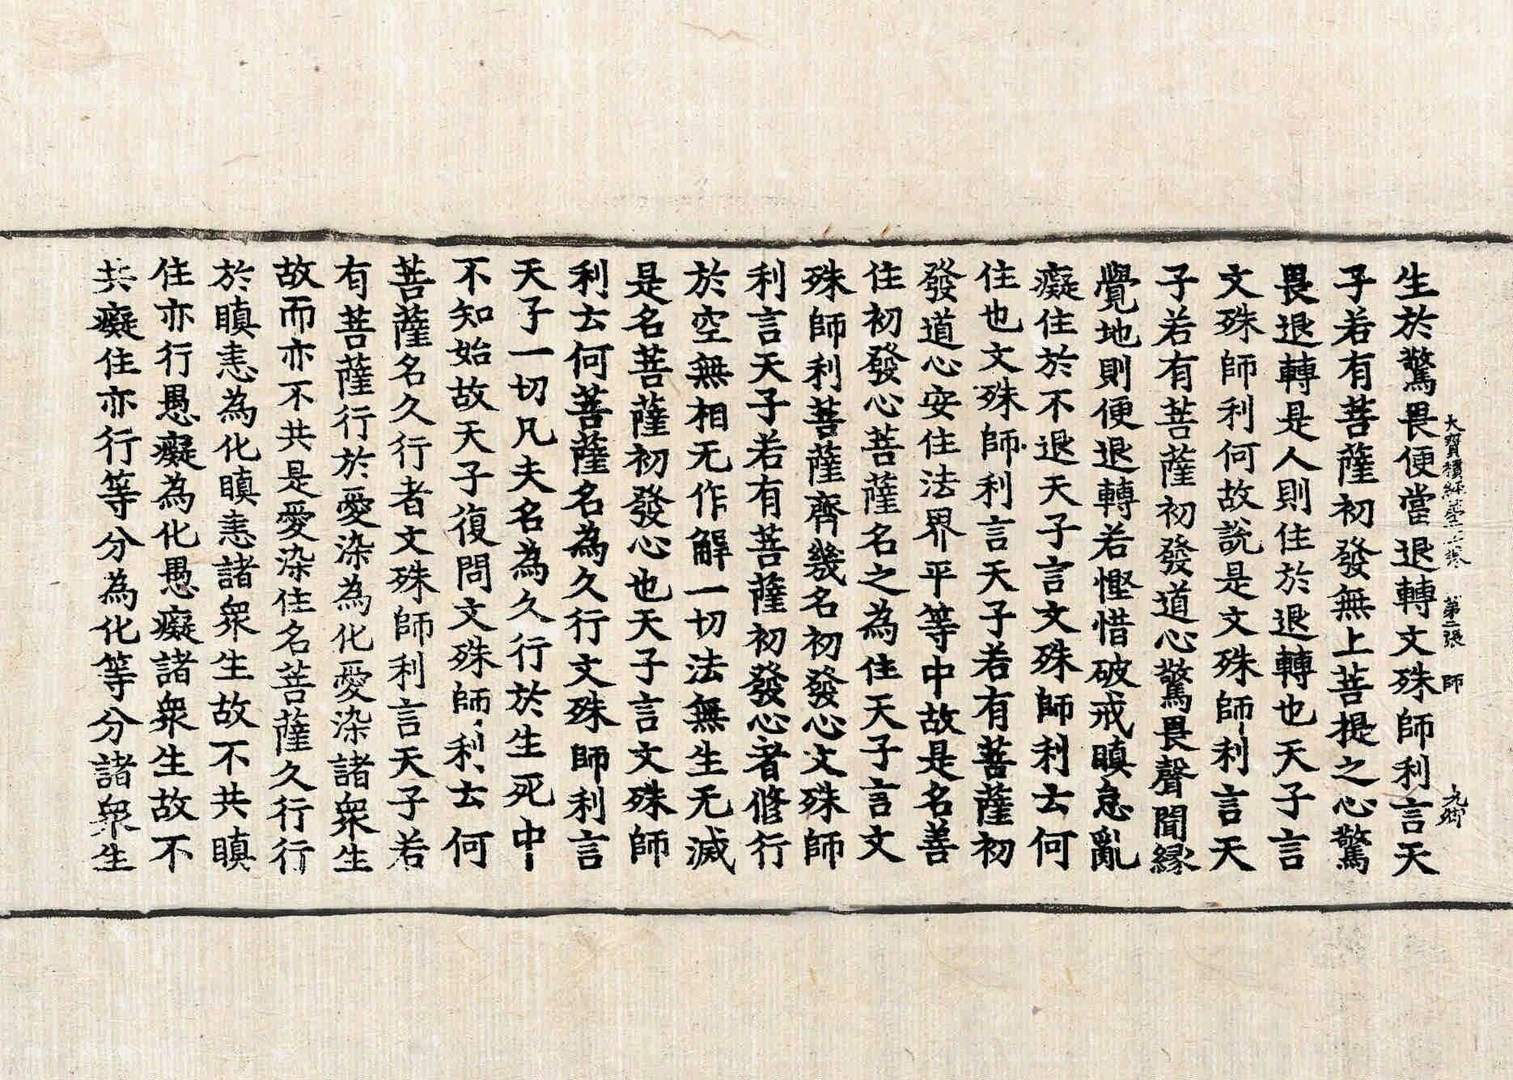 生於驚畏便當退轉文殊師利言天
大寶積經第 卷 第二張 師
子若有菩薩初發無上菩提之心驚
畏退轉是人則住於退轉也天子言
文殊師利何故說是文殊師利言天
子若有菩薩初發道心驚畏聲聞緣
覺地則便退轉若慳惜破戒瞋怠亂
癡住於不退天子言文殊師利云何
住也文殊師利言天子若有菩薩初
發道心安住法界平等中故是名善
住初發心菩薩名之為住天子言文
殊師利菩薩齊幾名初發心文殊師
利言天子若有菩薩初發心者修行
於空無相无作解一切法無生无滅
是名菩薩初發心也天子言文殊師
利云何菩薩名為久行文殊師利言
天子一切凡夫名為久行於生死中
不知始故天子復問文殊師利云何
菩薩名久行者文殊師利言天子若
有菩薩行於愛染為化愛染諸眾生
故而亦不共是愛染住名菩薩久行行
於瞋恚為化瞋恚諸眾生故不共瞋
住亦行愚癡為化愚癡諸眾生故不
共癡住亦行等分為化等分諸眾生